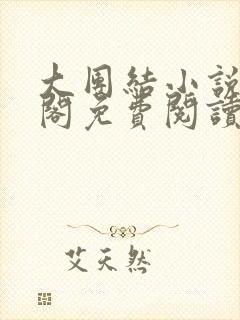 大團結小說
閣免費閱讀
艾天然